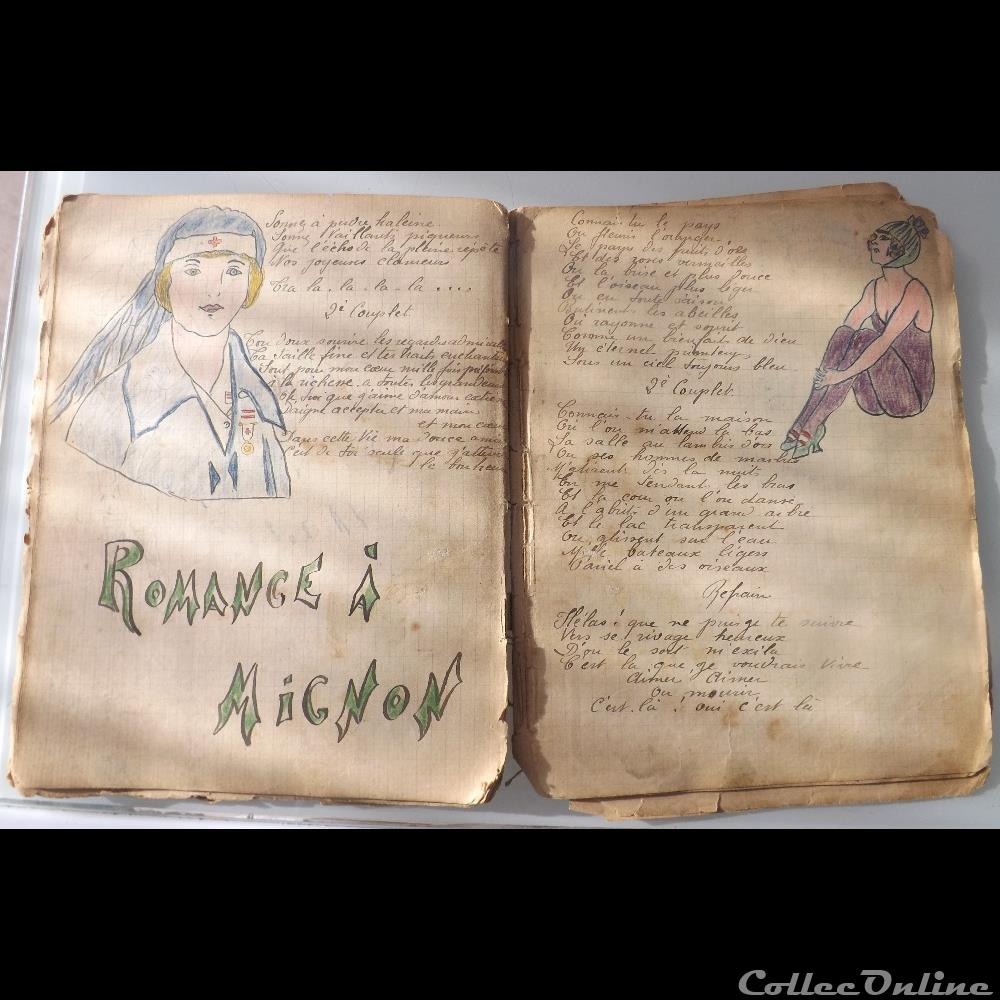 Sonnez à perdre haleine
Sonnez Vaillants piqueurs
Que l'écho de la pleine répète
Vos joyeuses clameurs
Tra la. la. la. la ....
2e Couplet
Ton doux sourire les regards admirable
Ta taille fine et tes traits enchanteurs
Sont pour mon cœur mille fois préférable
à la richesse à toutes les grandeurs
Oh toi que j'aime d'amour
Daigne accepter et ma main
et mon cœur
Dans cette Vie ma douce amie
C'est de toi seule que j'attends
le bonheur
ROMANCE à
MiGNON
Connais-tu le pays
Ou fleuri l'oranger
Le pays des fruits d'ors
Et des roses vermeilles
Ou la brise et plus douce
Et l'oiseau plus léger
Ou en toute saison
Butinent les abeilles
Où rayonne et sourit
Comme un bienfait de Dieu
Un éternel printemps
Sous un ciel toujours bleu
2e Couplet
Connais-tu la maison
Où l'on m'attend la bas
La salle au lambris d'ors
Ou ses hommes de marbre
M'apellent dès la nuits
En me tendant les bras
Et la cour ou l'on danse
A l'abrit d'un grand arbre
Et le lac transparent
Ou glissent sur l'eau
Mille bateaux légers
Pareil à des oiseaux
Refrain
Hélas! que ne puis je te suivre
Vers se rivage heureux
D'ou le sort m'exila
C'est la que je voudrais vivre
Aimer Aimer
Ou mourir
C'est là! oui c'est là
CollecOnline